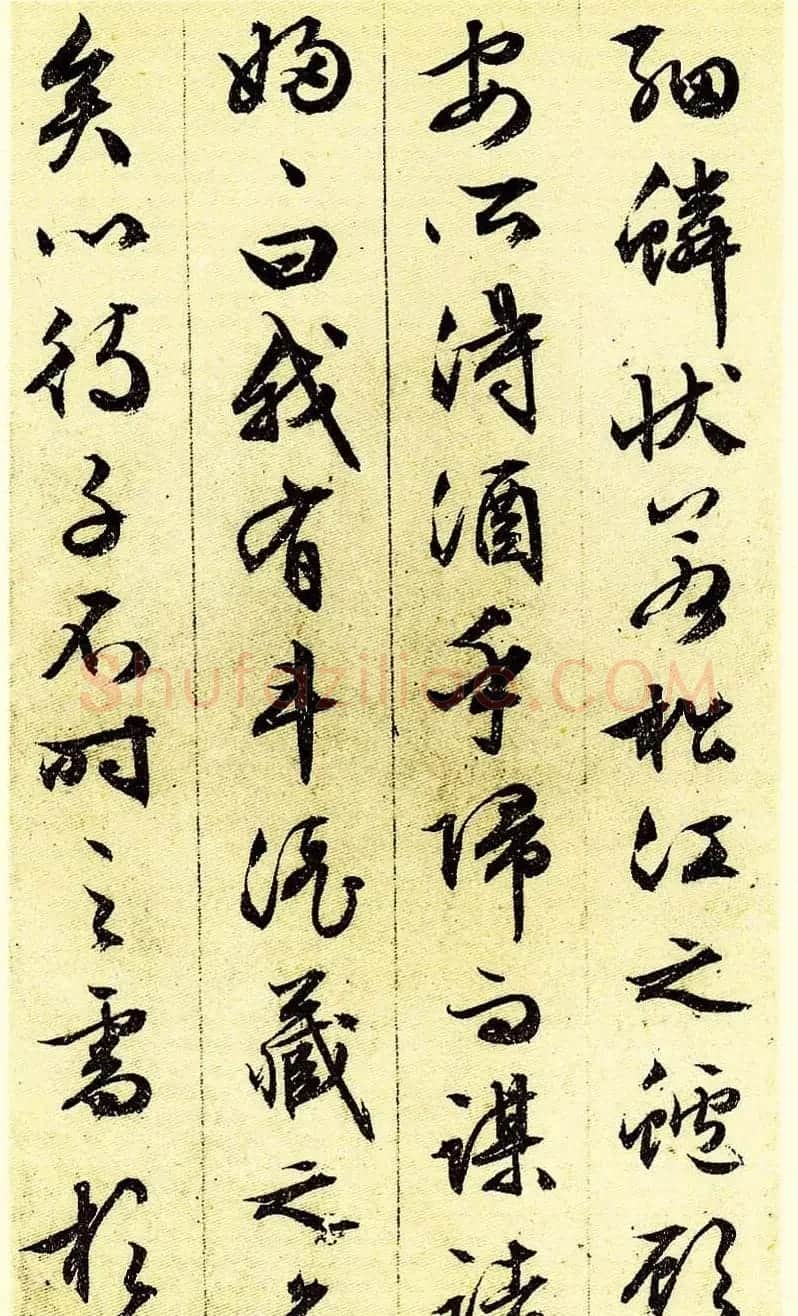 細鱗狀若松江之鱸顧
安所得酒乎歸而謀諸
婦〻曰我有斗酒藏之久
矣以待子不時之需於
Shufaziliao.COM